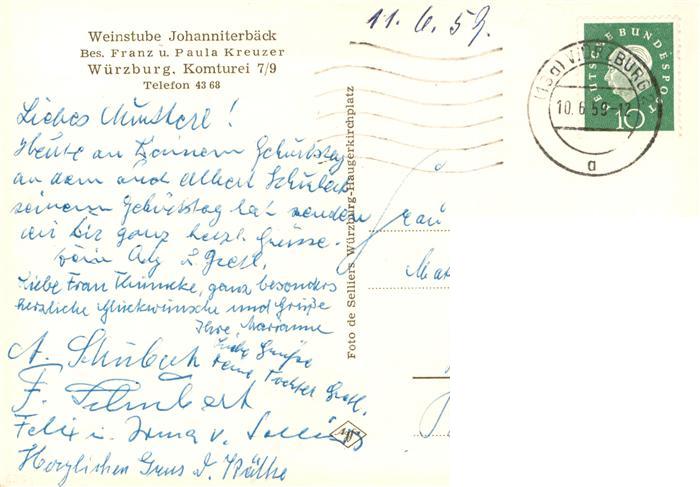 Weinstube Johanniterbäck
Bes. Franz u. Paula Kreuzer
Würzburg, Komturei 7/9
Telefon 43 68
11. 6. 59.
DEUTSCHE BUNDESPOST
10
(13a) WÜRZBURG
10. 6. 59-12
a
Liebes Mutterl!
Heute an Deinem Geburtstag
an dem auch Albert Schubert
seinem Geburtstag hat senden
wir Dir ganz herzl. Grüsse.
Dein Adg & Gretl.
Liebe Frau Thümcke, ganz besonders
herzliche Glückwünsche und Grüße
Ihre Marianne
Liebe Grüße
Deine Tochter Gretl.
A. Schubert
F. Schubert
Felix u. Irma v.
Herzlichen Gruss I. Käthe
Foto de Selliers Würzburg-Haugerkirchplatz
Frau